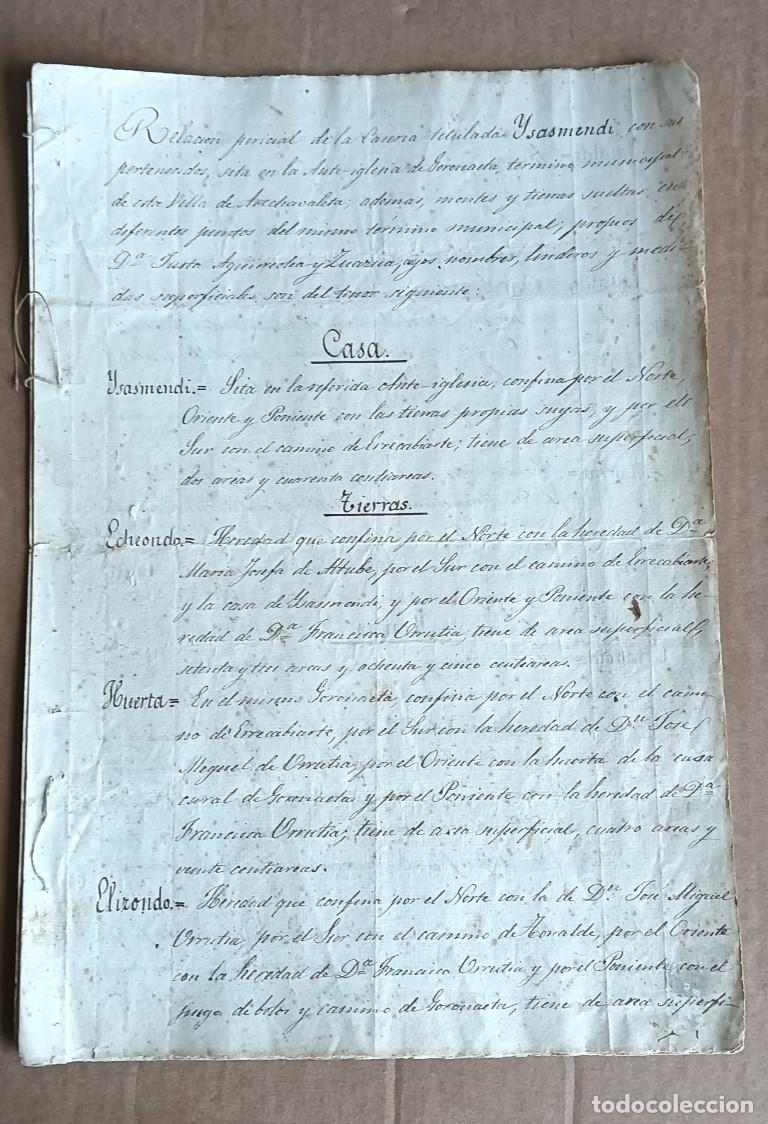 Relacion pericial de la Caseria titulada Ysasmendi con sus
pertenecidos, sita en la Ante-iglesia de Goronaeta, término municipal
de esta Villa de Arechavaleta; además, montes y tierras sueltas en
diferentes puntos del mismo término municipal; propios de
Dª Justa Aguirrolea y Zuazua; cuyos nombres, linderos y medi-
das superficiales, son del tenor siguiente:
Casa.
Ysasmendi.= Sita en la referida Ante-iglesia, confina por el Norte,
Oriente y Poniente con las tierras propias suyas, y por el
Sur con el camino de Errecabiarte; tiene de area superficial,
dos areas y cuarenta centiareas.
Tierras.
Echeondo.= Heredad que confina por el Norte con la heredad de Dª
Maria Josefa de Altube, por el Sur con el camino de Errecabiarte,
y la casa de Ysasmendi, y por el Oriente y Poniente con la he-
redad de Dª Francisca Urrutia, tiene de area superficial,
setenta y tres areas y ochenta y cinco centiareas.
Huerta= En el mismo Goronaeta, confina por el Norte con el cami-
no de Errecabiarte, por el Sur con la heredad de Dn. José
Miguel de Urrutia, por el Oriente con la huerta de la casa
cural de Goronaeta y por el Poniente con la heredad de Dª
Francisca Urrutia; tiene de area superficial, cuatro areas y
veinte centiareas.
Elizondo.= Heredad que confina por el Norte con la de Dn. José Miguel
Urrutia, por el Sur con el camino de Torralde, por el Oriente
con la heredad de Dª Francisca Urrutia y por el Poniente con el
juego de bolos y camino de Goronaeta, tiene de area superfi-
todocoleccion